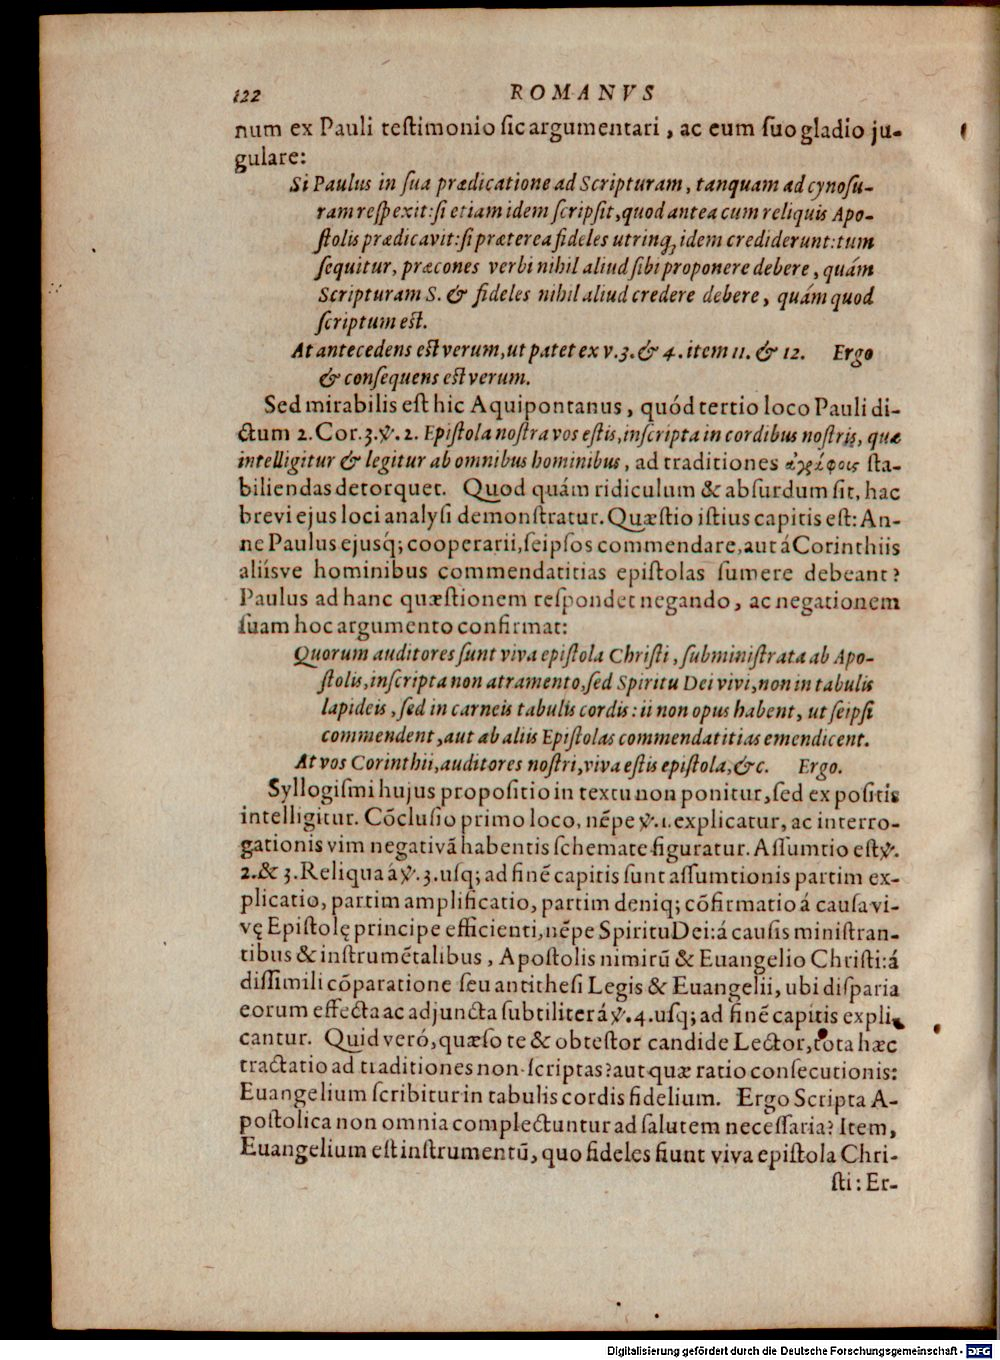 122 ROMANVS
num ex Pauli teſtimonio ſic argumentari, ac eum ſuo gladio ju-
gulare:
Si Paulus in ſua prædicatione ad Scripturam, tanquam ad cynoſu-
ram reſpexit: ſi etiam idem ſcripſit, quod antea cum reliquis Apo-
ſtolis prædicavit: ſi præterea fideles utrinq; idem crediderunt: tum
ſequitur, præcones verbi nihil aliud ſibi proponere debere, quám
Scripturam S. & fideles nihil aliud credere debere, quám quod
ſcriptum eſt.
At antecedens eſt verum, ut patet ex v. 3. & 4. item 11. & 12. Ergo
& conſequens eſt verum.
Sed mirabilis eſt hic Aquipontanus, quód tertio loco Pauli di-
ctum 2. Cor. 3. ℣. 2. Epiſtola noſtra vos eſtis, inſcripta in cordibus noſtris, quæ
intelligitur & legitur ab omnibus hominibus, ad traditiones ἀγράφοις ſta-
biliendas detorquet. Quod quám ridiculum & abſurdum ſit, hac
brevi ejus loci analyſi demonſtratur. Quæſtio iſtius capitis eſt: An-
ne Paulus ejusq́; cooperarii, ſeipſos commendare, aut á Corinthiis
aliísve hominibus commendatitias epiſtolas ſumere debeant?
Paulus ad hanc quæſtionem reſpondet negando, ac negationem
ſuam hoc argumento confirmat:
Quorum auditores ſunt viva epiſtola Chriſti, ſubminiſtrata ab Apo-
ſtolis, inſcripta non atramento, ſed Spiritu Dei vivi, non in tabulis
lapideis, ſed in carneis tabulis cordis: ii non opus habent, ut ſeipſi
commendent, aut ab aliis Epiſtolas commendatitias emendicent.
At vos Corinthii, auditores noſtri, viva eſtis epiſtola, &c. Ergo.
Syllogiſmi hujus propoſitio in textu non ponitur, ſed ex poſitis
intelligitur. Cōcluſio primo loco, nẽpe ℣. 1. explicatur, ac interro-
gationis vim negativã habentis ſchemate figuratur. Aſſumtio eſt ℣.
2. & 3. Reliqua á ℣. 3. uſq; ad finẽ capitis ſunt aſſumtionis partim ex-
plicatio, partim amplificatio, partim deniq; cōfirmatio á cauſa vi-
vę Epiſtolę principe efficienti, nẽpe Spiritu Dei: á cauſis miniſtran-
tibus & inſtrumẽtalibus, Apoſtolis nimirū & Euangelio Chriſti: á
diſſimili cōparatione ſeu antitheſi Legis & Euangelii, ubi diſparia
eorum effecta ac adjuncta ſubtiliter á ℣. 4. uſq; ad finẽ capitis expli-
cantur. Quid veró, quæſo te & obteſtor candide Lector, tota hæc
tractatio ad traditiones non ſcriptas? aut quæ ratio conſecutionis:
Euangelium ſcribitur in tabulis cordis fidelium. Ergo Scripta A-
poſtolica non omnia complectuntur ad ſalutem neceſſaria? Item,
Euangelium eſt inſtrumentū, quo fideles fiunt viva epiſtola Chri-
ſti: Er-
Digitalisierung gefördert durch die Deutsche Forschungsgemeinschaft - DFG